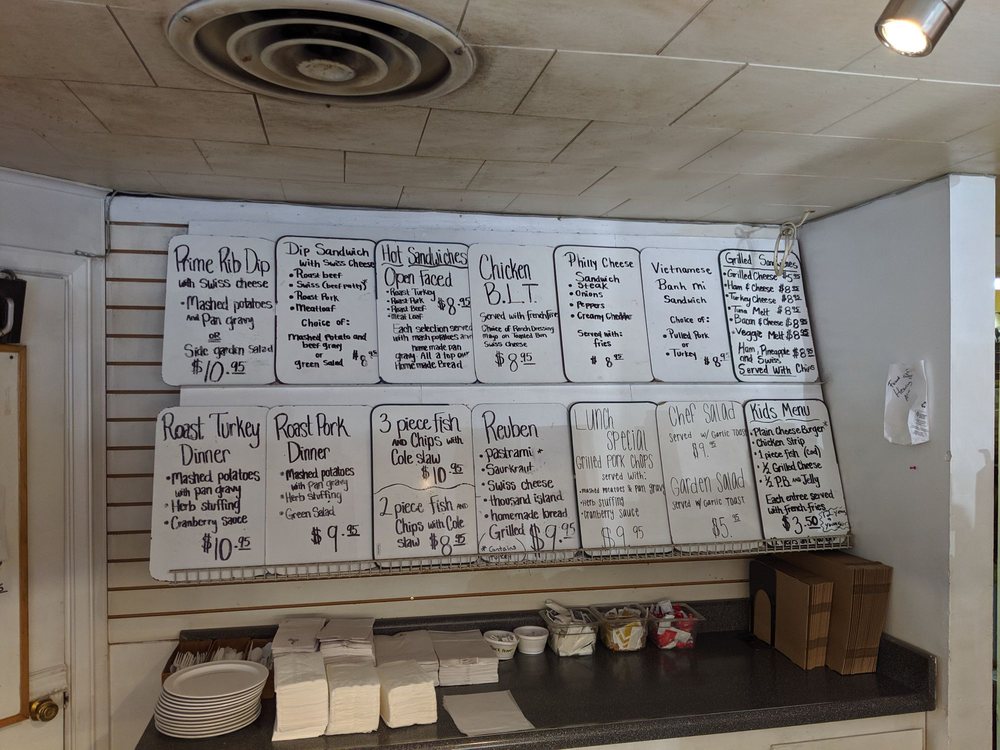 Prime Rib Dip
with Swiss cheese
• Mashed potatoes
And Pan gravy
OR
Side garden Salad
$10.95
Dip Sandwich
with Swiss cheese
• Roast beef
• Swiss (beef patty)
• Roast Pork
• Meatloaf
Choice of:
Mashed Potato and
beef gravy
or
green salad
$8
Hot Sandwiches
Open Faced
• Roast Turkey
• Roast Pork
• Roast Beef
• Meat Loaf
$8.95
Each selection served
with mash potatoes and
home made pan
gravy All a top our
Homemade Bread
Chicken
B.L.T.
Served with frenchfries
Choice of Ranch Dressing
Mayo on Toasted Bun
Swiss Cheese
$8.95
Philly Cheese
Sandwich
• Steak
• Onions
• Peppers
• Creamy Cheddar
Served with:
fries
$8.95
Vietnamese
Banh mi
Sandwich
Choice of:
• Pulled Pork
or
• Turkey
$8.95
Grilled
• Grilled Cheese $5.95
• Ham & Cheese $8.95
• Turkey Cheese $8.95
• Tuna Melt $8.95
• Bacon & Cheese $8.95
• Veggie Melt $8.95
Ham, Pineapple
and Swiss
$8.95
Served With Chips
Roast Turkey
Dinner
• Mashed potatoes
with pan gravy
• Herb stuffing
• Cranberry sauce
$10.95
Roast Pork
Dinner
• Mashed potatoes
with pan gravy
• Herb stuffing
• Green Salad
$9.95
3 piece fish
AND Chips with
Cole slaw
$10.95
2 piece fish
AND
Chips with Cole
slaw $8.95
Reuben
• Pastrami *
• Saurkraut
• Swiss cheese
• thousand island
• homemade bread
Grilled $9.95
* Contains
Lunch
Special
Grilled Pork Chops
served with:
• mashed potatoes & pan gravy
• herb stuffing
• cranberry sauce
$9.95
Chef Salad
Served w/ Garlic Toast
$9.95
Garden Salad
Served w/ Garlic Toast
$5.95
Kids Menu
• Plain Cheese Burger
• Chicken Strip
• 1 piece fish (cod)
• 1/2 Grilled Cheese
• 1/2 P.B. and Jelly
Each entree served
with french fries
$3.50